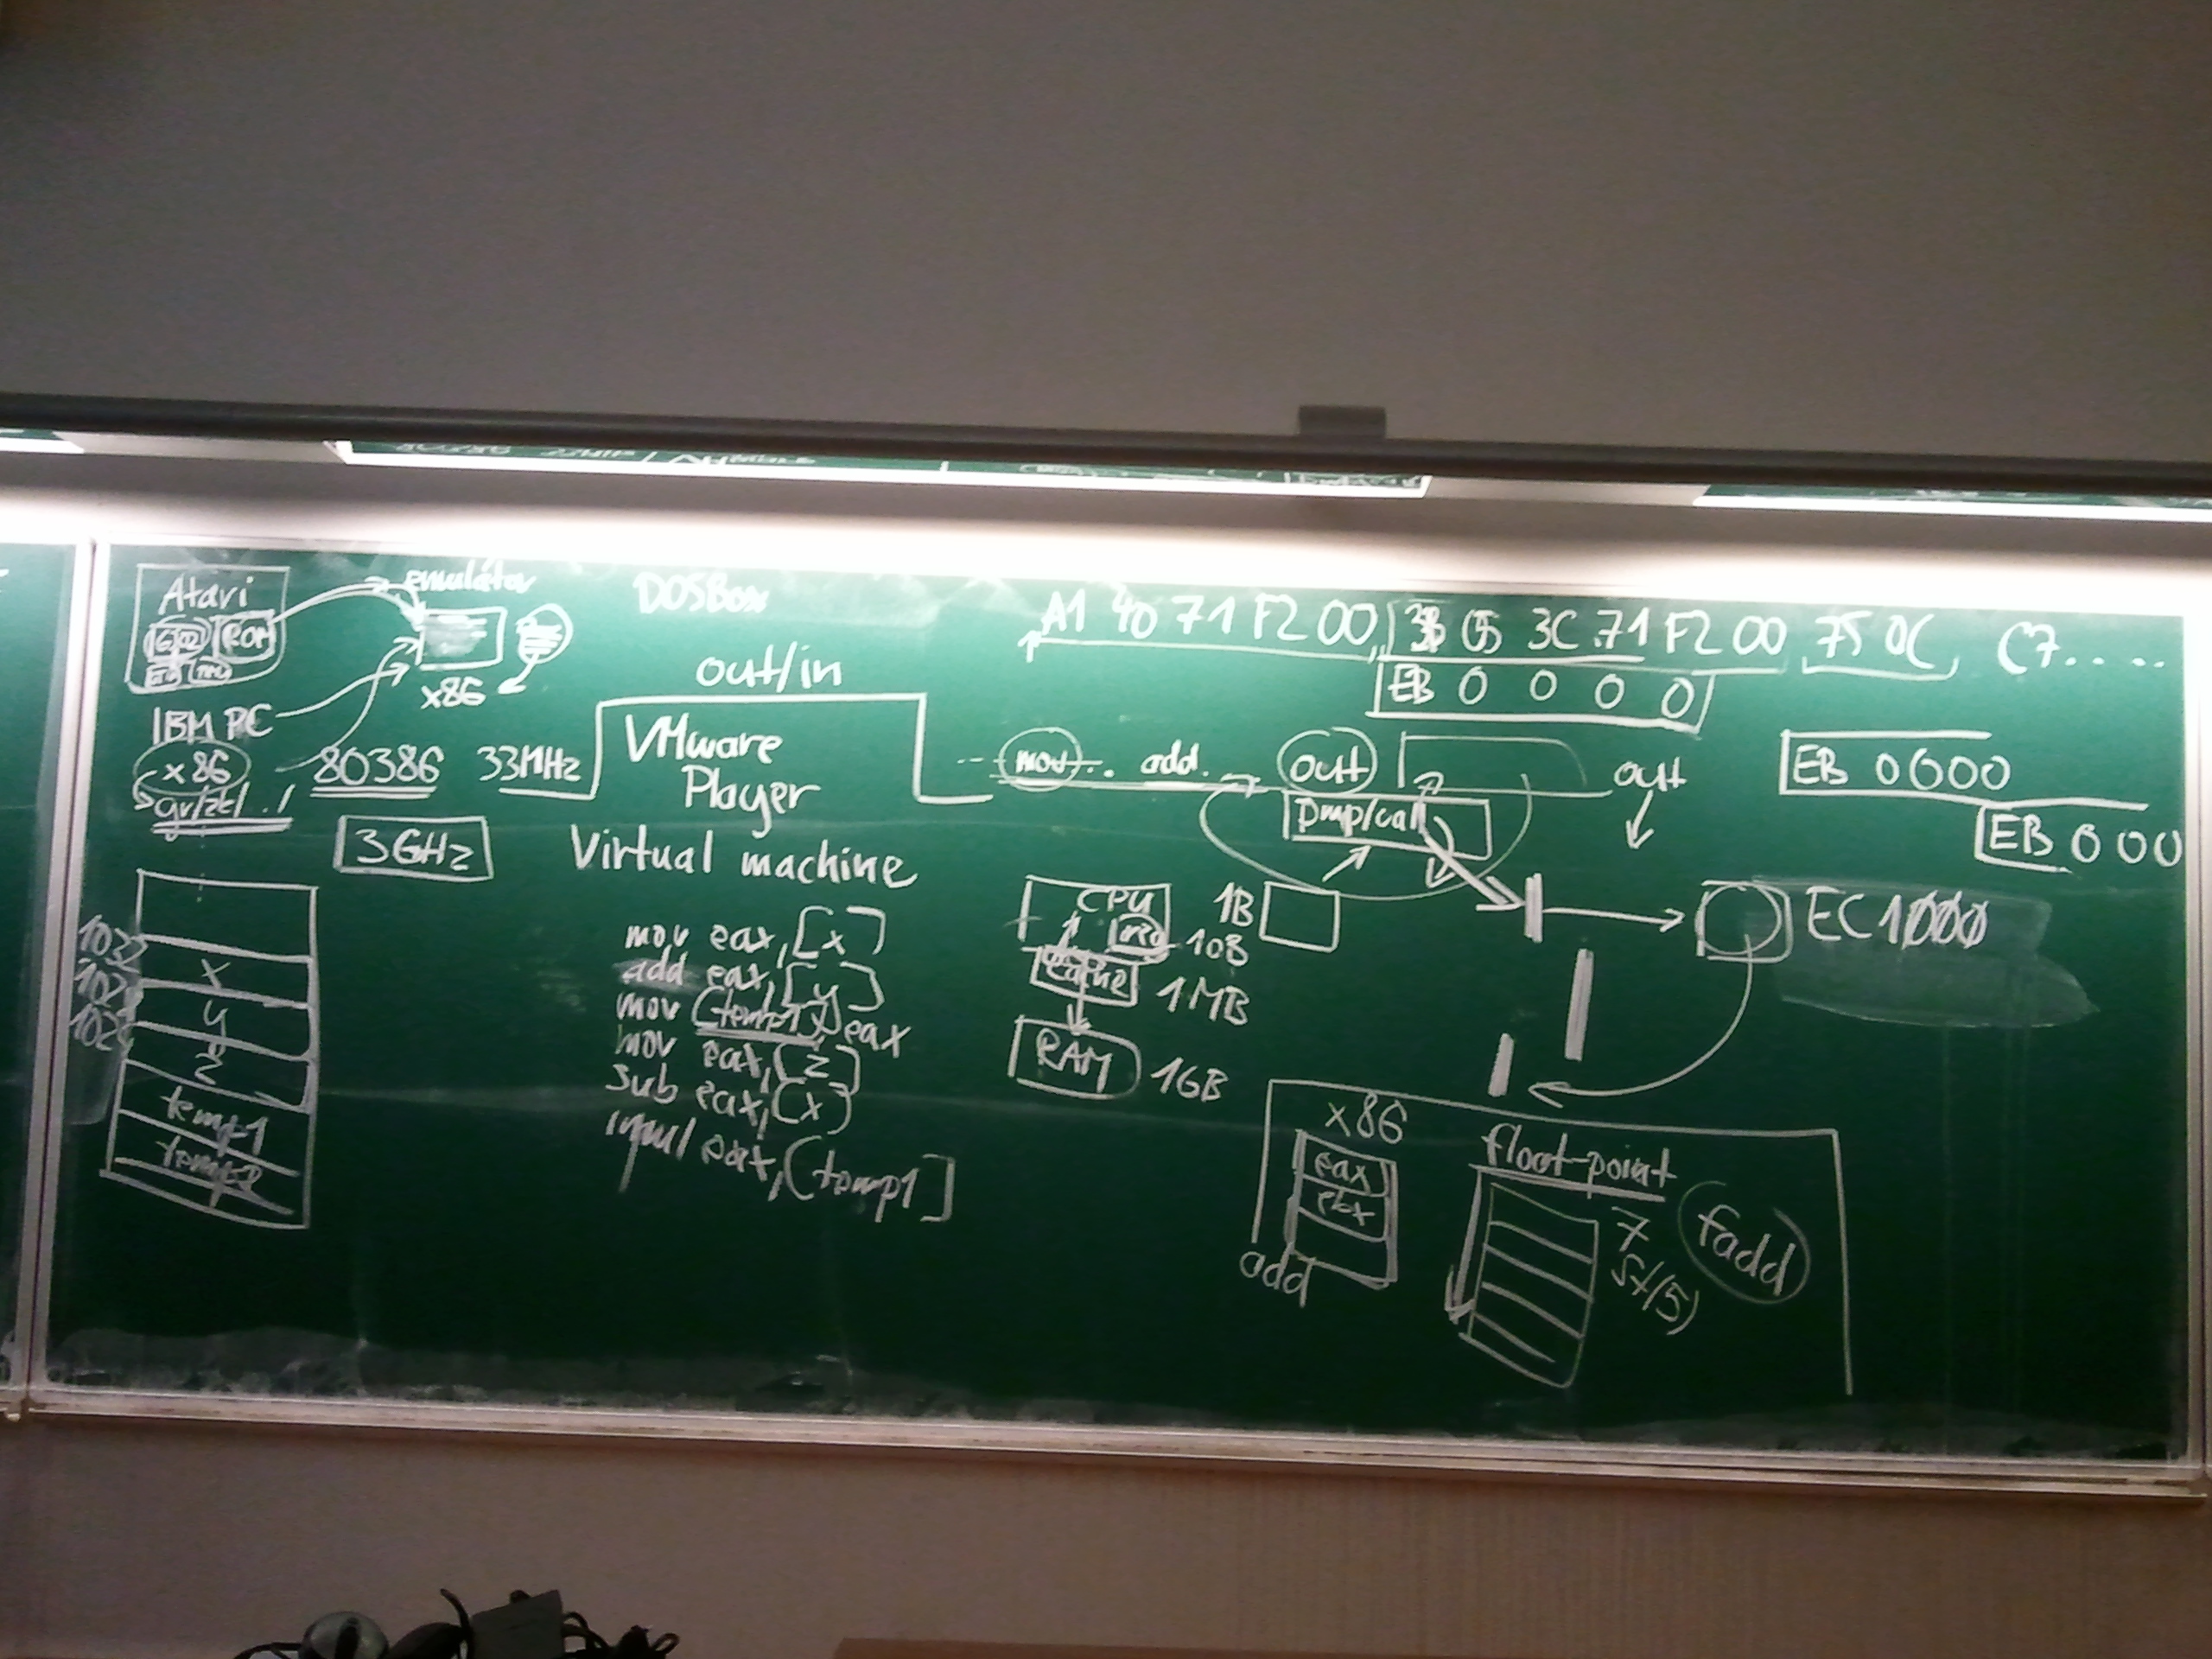 Atari
ROM
emulátor
x86
IBM PC
x86
80386 33MHz
3GHz
x
y
z
temp1
temp2
DOSBox
out/in
VMware
Player
Virtual machine
mov eax,[x]
add eax,[y]
mov [temp1],eax
mov eax,[z]
sub eax,[x]
imul eax,[temp1]
A1 40 71 F2 00 3B 05 3C 71 F2 00 75 0C C7.....
EB 0 0 0 0
--- mov.. add. out out
jmp/call
EB 0000
EB 000
CPU
1B
10B
cache 1MB
RAM 1GB
EC1000
x86
eax
ebx
add
float-point
7
st(5)
fadd